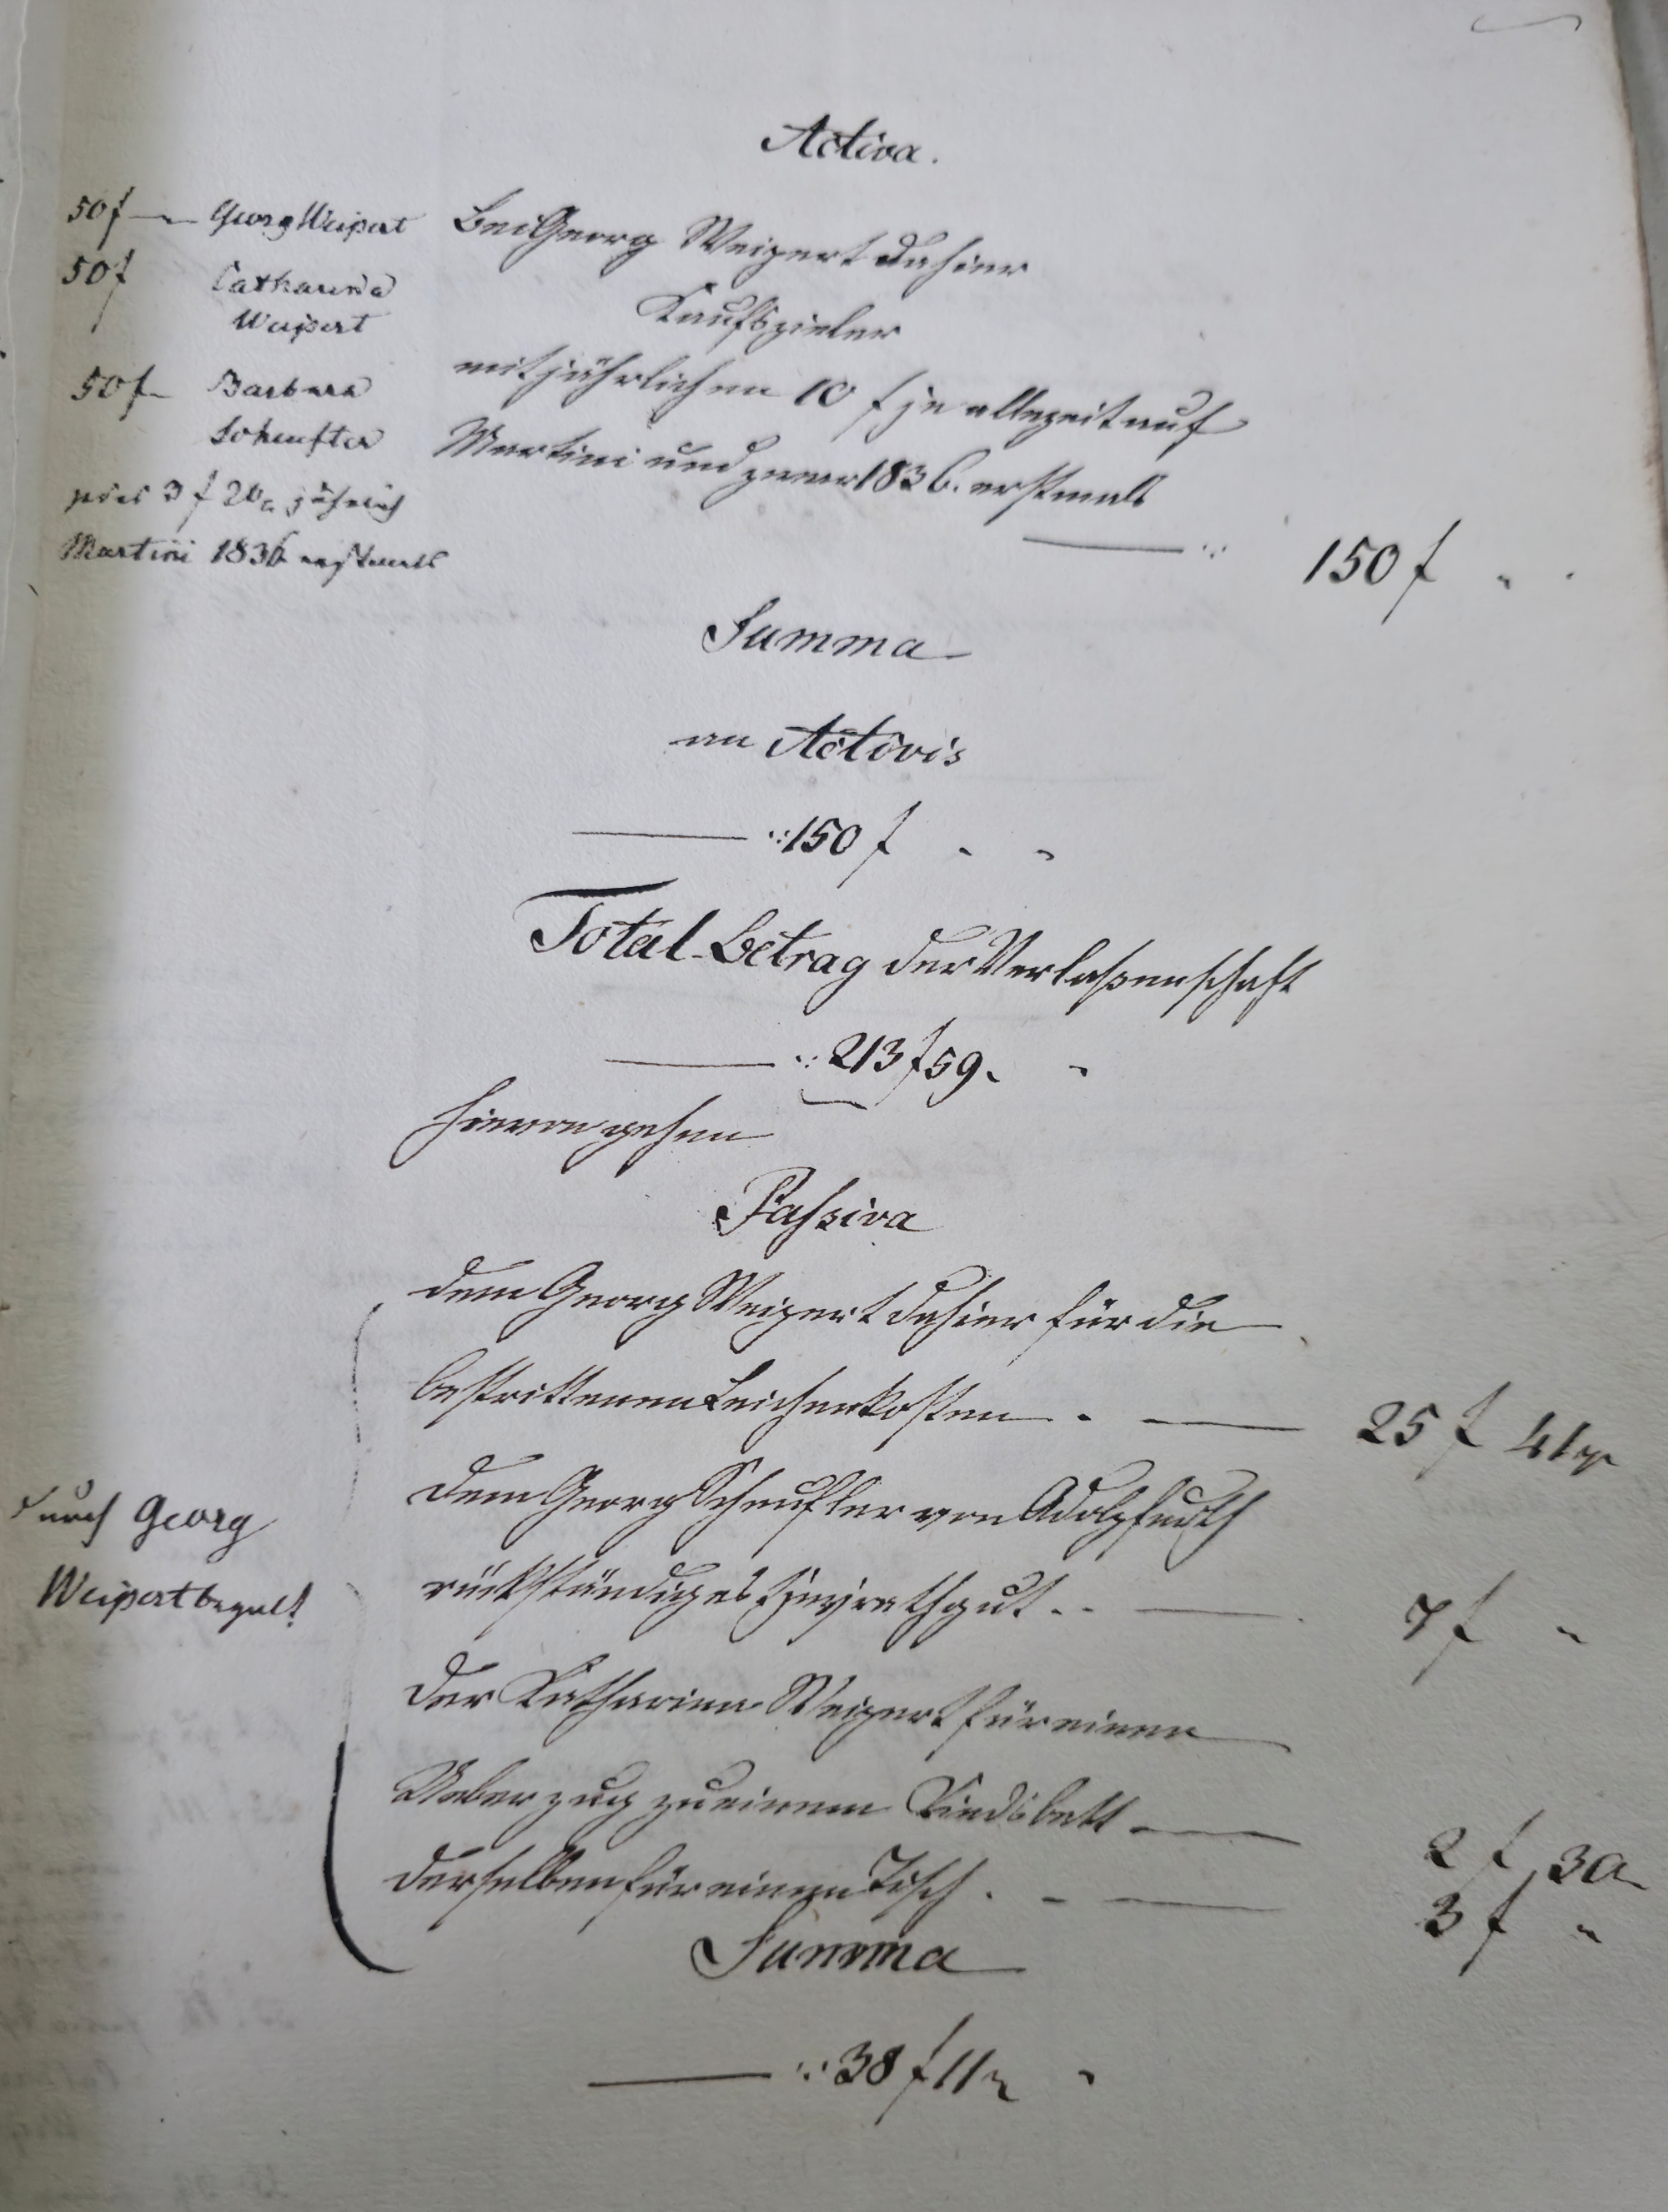 Activa.
50 f Georg Weipert
50 f Catharina
Weipert
50 f Barbara
Scheufler
jährlich
Martini 1836 erstmals
Bei Georg Weipert dahier
Kaufszieler
mit jährlichen 10 f je allezeit auf
Martini und zwar 1836. erstmals
150 f
Summa
an Activis
150 f
Total-Betrag der Verlaßenschaft
213 f 59
Hievon gehen
Passiva
dem Georg Weipert dahier für die
bestrittenen Leichenkosten . 25 f 41 xr
dem Georg Scheufler von
rückständiges Heyrathgut . . 7 f
der Katharina Weipert für einen
Ueberzug zu einem Kindsbett 2 f 30
derselben für einen Tisch . 3 f
durch Georg
Weipert bezalt
Summa
38 f 11